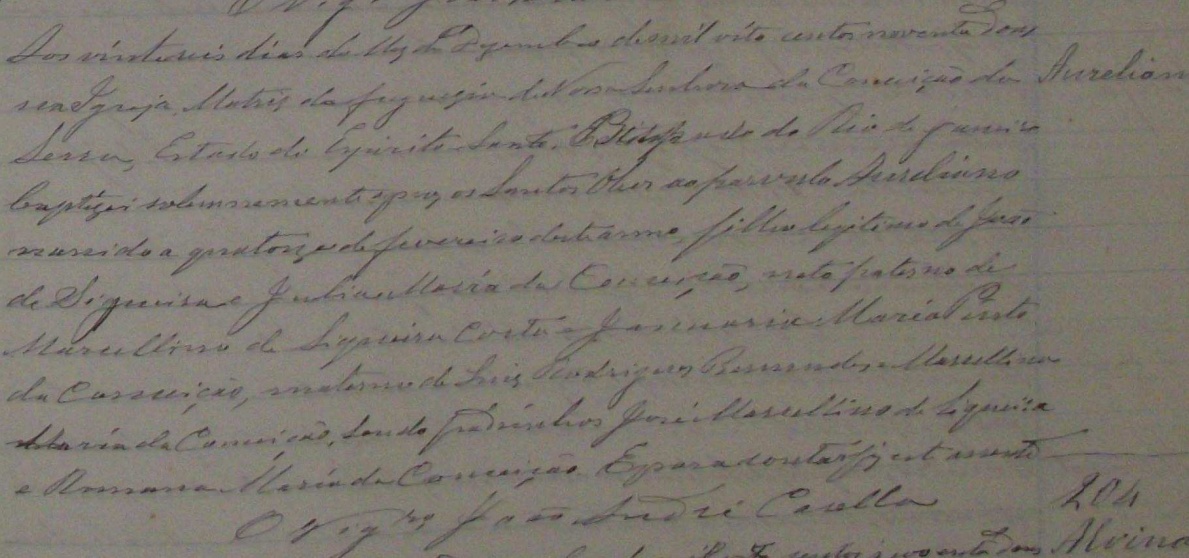 Aos vinte seis dias do Mez de Dezembro de mil oito centos noventa dous
n'esta Igreja Matriz da freguezia de Nossa Senhora da Conceição da
Aureliano
Serra, Estado do Espirito Santo, Bispado do Rio de Janeiro
baptizei solemnemente e puz os Santos Oleos ao parvulo Aureliano
nascido a quatorze de fevereiro deste anno, filho legitimo de João
de Siqueira e Julia Maria da Conceição, neto paterno de
Marcellino de Siqueira Costa e Januaria Maria Pinto
da Conceição, materno de Luiz Rodrigues e Marcellina
Maria da Conceição, sendo padrinhos José Marcellino de Siqueira
e Romana Maria da Conceição. E para constar fiz este assento
O Vigro João André Casella
204
centos noventa dous
Alvina